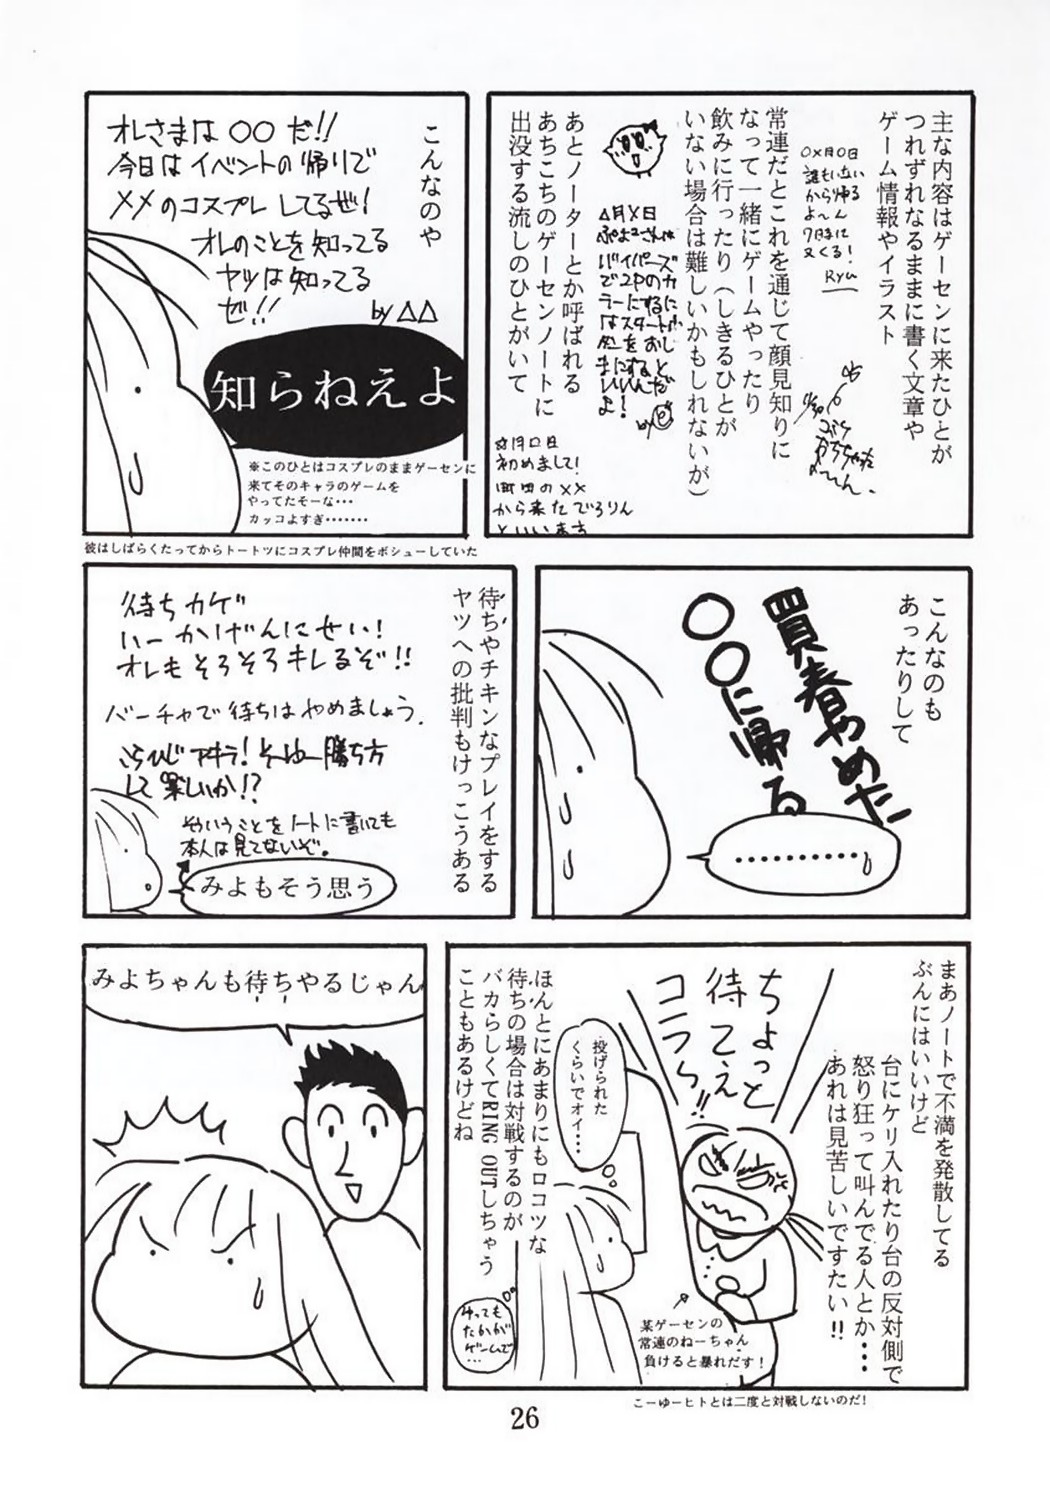 主な内容はゲーセンに来たひとが
つれずれなるままに書く文章や
ゲーム情報やイラスト
〇×月〇日
誰もいない
から帰る
よ〜ん
7時まに
又くる!
Ryu
常連だとこれを通じて顔見知りに
なって一緒にゲームやったり
飲みに行ったり(しきるひとが
いない場合は難しいかもしれないが)
△月×日
ぷよまさんは
バイパーズの
で2Pのカ
ラーにするに
はスタートが
めを押し
まにねと
いいんだ
よ!
by
あとノーターとか呼ばれる
あちこちのゲーセンノートに
出没する流しのひとがいて
☆月□日
初めまして!
町田の××
から来たでろりん
といいます
こんなのや
オレさまは〇〇だ!!
今日はイベントの帰りで
××のコスプレしてるぜ!
オレのことを知ってる
ヤツは知ってる
ぜ!!
by △△
知らねえよ
※このひとはコスプレのままゲーセンに
来てそのキャラのゲームを
やってたそーな・・・
カッコよすぎ・・・・・・・
彼はしばらくたってからトートツにコスプレ仲間をボシューしていた
こんなのも
あったりして
買春やめた
〇〇に帰る
・・・・・・・・・・・
待ちやチキンなプレイをする
ヤツへの批判もけっこうある
待ちカゲ
いーかげんにせい!
オレもそろそろキレるぞ!!
バーチャで待ちはやめましょう.
こらひじアキラ!そゆー勝ち方
して楽しいか!?
そういうことをノートに書いても
本人は見てないぞ。
みよもそう思う
まあノートで不満を発散してる
ぶんにはいいけど
台にケリ入れたり台の反対側で
怒り狂って叫んでる人とか・・・
あれは見苦しいですたい!!
ちょっと
待てぇ
コラぁ!!
投げられた
くらいでオイ・・・
某ゲーセンの
常連のねーちゃん
負けると暴れだす!
ほんとにあまりにもロコツな
待ちの場合は対戦するのが
バカらしくてRING OUTしちゃう
こともあるけどね
ゆっても
たかが
ゲームで
…
こーゆーヒトとは二度と対戦しないのだ!
みよちゃんも待ちやるじゃん
26